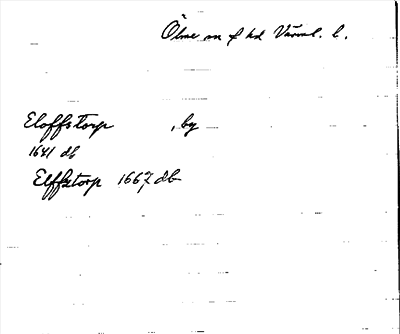 Ölme sn f hd Värml. l.
Eloffstorp , by
1641 db
Elffztorp 1667 db